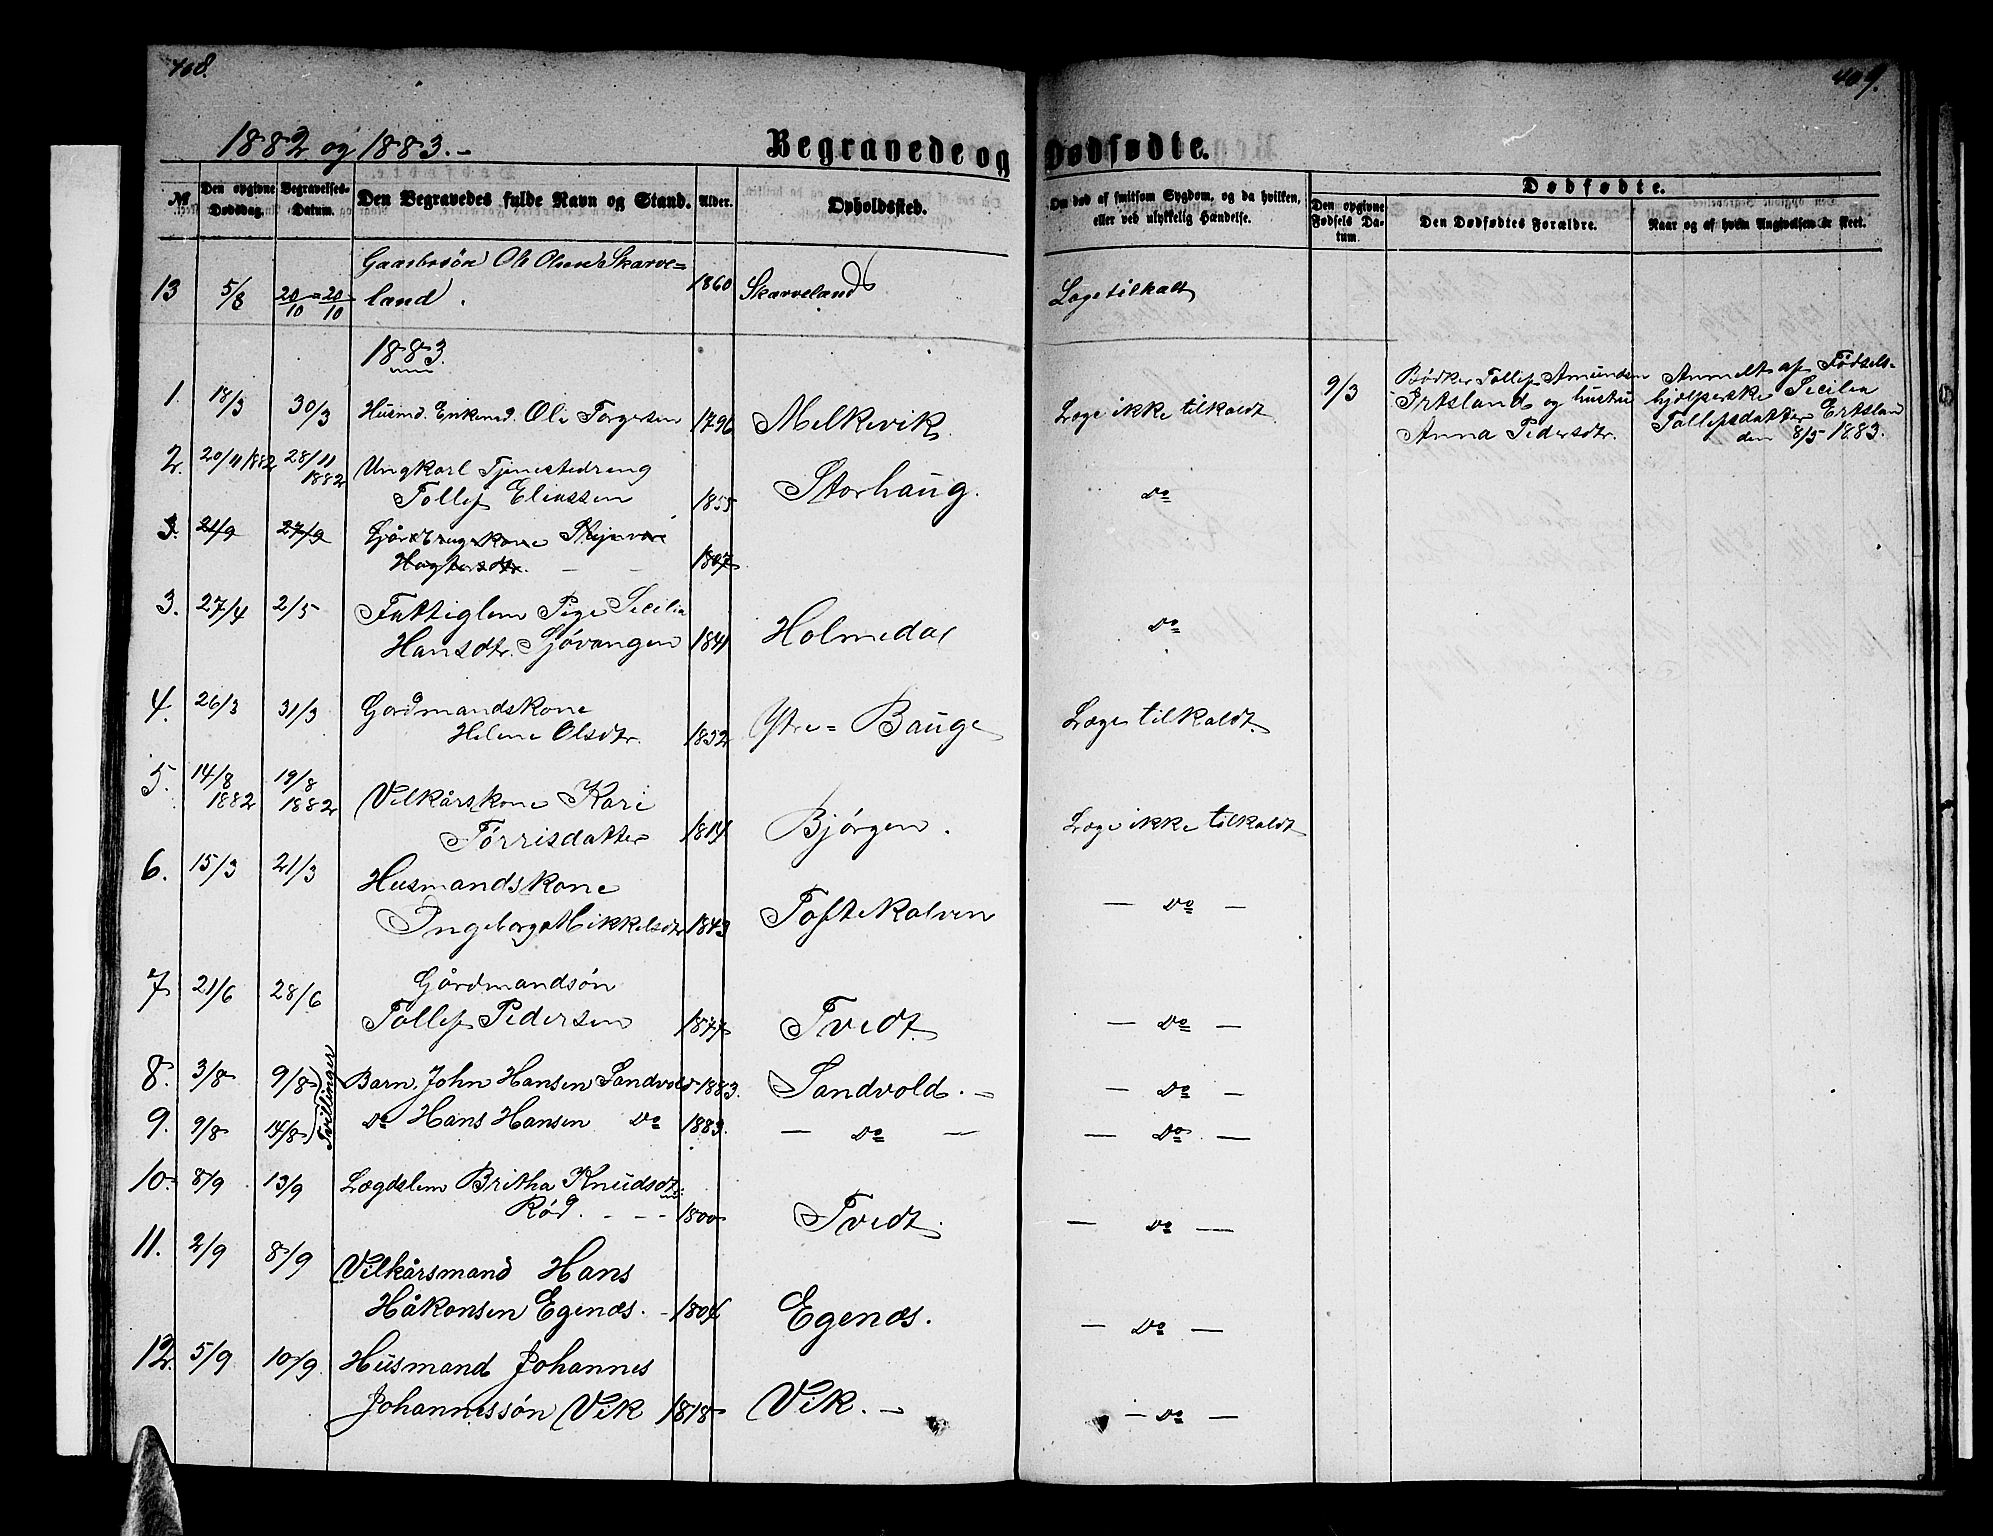 408.
409.
1882 og 1883.-
Begravede og Dødfødte.
№
Den opgivne Dødsdag.
Begravelses-Datum.
Den Begravedes fulde Navn og Stand.
Alder.
Opholdssted.
Om død af smitsom Sygdom, og da hvilken,
eller ved ulykkelig Hændelse.
Dødfødte.
Den opgivne Fødsels Datum.
Den Dødfødtes Forældre.
Naar og af hvem Angivelsen er skeet.
Ole Olsen Skarve=
13 5/8 20/10 = 20/10 land. 1860 Skarveland Læge tilkaldt
1883.
1. 18/3 30/3 Husmd. Enkemd. Ole Torgersen 1796 Melkevik. Læge ikke tilkaldt.
9/3 Bødker Tollef Amundsen
og hustru
Anna Pedersdtr.
Anmeldt af Fødsels-
hjælperske Cecilia
Tollefsdatter
den 8/5 1883.
2. 20/11 1882 28/11 1882 Ungkarl Tjenestedreng
Tollef Eliassen 1855 Storhaug. do
3. 21/9 27/9
1807
3. 27/4 2/5 Fattiglem Pige Cecilia
Hansdtr. Sjøvangen 1841 Holmedal do
4. 26/3 31/3 Gordmandskone
Helene Olsdtr. 1852 Ytre= Bauge Læge tilkaldt.
5. 14/8 1882 19/8 1882 Vilkårskone Kari
Tørrisdatter 1814 Bjørgen. Læge ikke tilkaldt
6. 15/3 21/3 Husmandskone
Ingeborg Mikkelsdtr 1843 Toftekalven — do —
7 21/6 28/6 Gårdmandsøn
Tollef Pedersen 1877 Tvedt. — do —
8. 3/8 9/8 Tvillinger Barn, John Hansen Sandvold 1883. Sandvold. — — do —
9. 9/8 14/8 do Hans Hansen do 1883. — do — — do. —
10. 8/9 13/9 Lægdslem Britha Knudsdtr.
Rød. - - - 1800 Tvedt. — do —
11. 2/9 8/9 Vilkårsmand Hans
Håkonsen Egenæs. - 1804 Egenæs. — do —
12. 5/9 10/9 Husmand Johannes
Johannessøn Vik 1818 Vik. — — do —